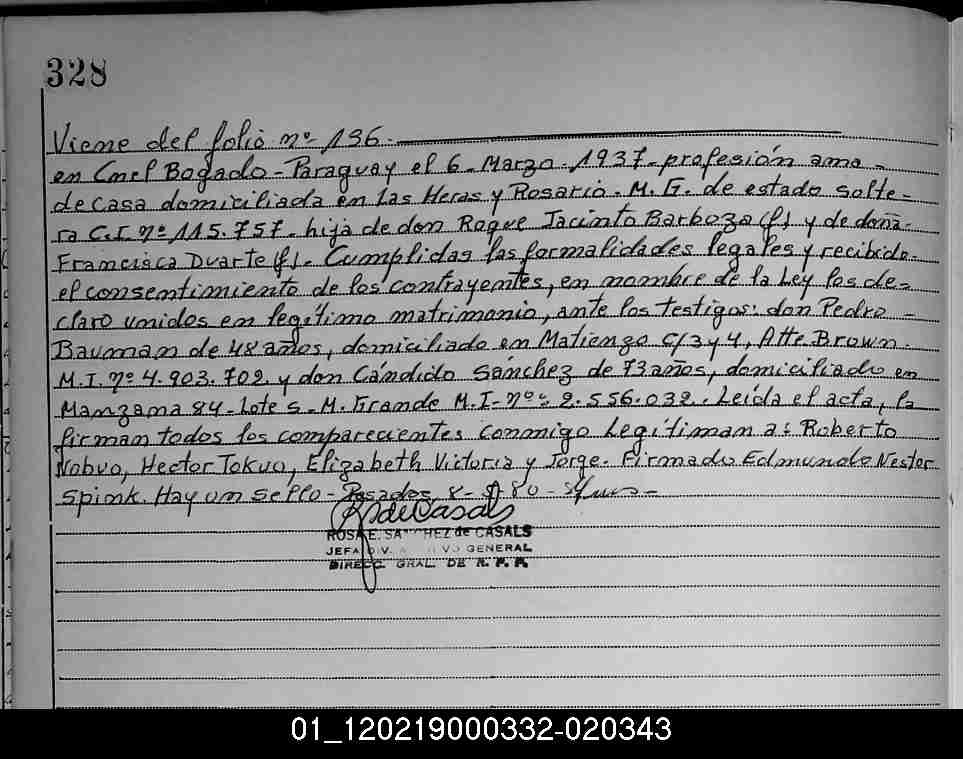 328
Viene del folio nº 136.
en Cnel Bogado - Paraguay el 6 - Marzo - 1937 - profesión ama -
de casa domiciliada en Las Heras y Rosario. M. G. de estado solte-
ra C.I. nº 115.757 - hija de don Roque Jacinto Barboza (f) y de doña
Francisca Duarte (f). Cumplidas las formalidades legales y recibido
el consentimiento de los contrayentes, en nombre de la Ley los de-
claro unidos en legítimo matrimonio, ante los testigos: don Pedro -
Bauman de 48 años, domiciliado en Matienzo c/3 y 4, Alte. Brown.
M.I. nº 4.903.702 y don Cándido Sánchez de 73 años, domiciliado en
Manzana 84 - Lote 5 - M. Grande M.I - nº 2.556.032. Leída el acta, la
firman todos los comparecientes conmigo Legitiman a: Roberto
Nobuo, Hector Tokuo, Elizabeth Victoria y Jorge. Firmado Edmundo Nestor
Spink. Hay un sello - Posadas, 8 - 80 -
RdeCasals
ROSA E. SANCHEZ de CASALS
JEFA DIV. ARCHIVO GENERAL
DIRECC. GRAL. DE R. P. P.
01_120219000332-020343